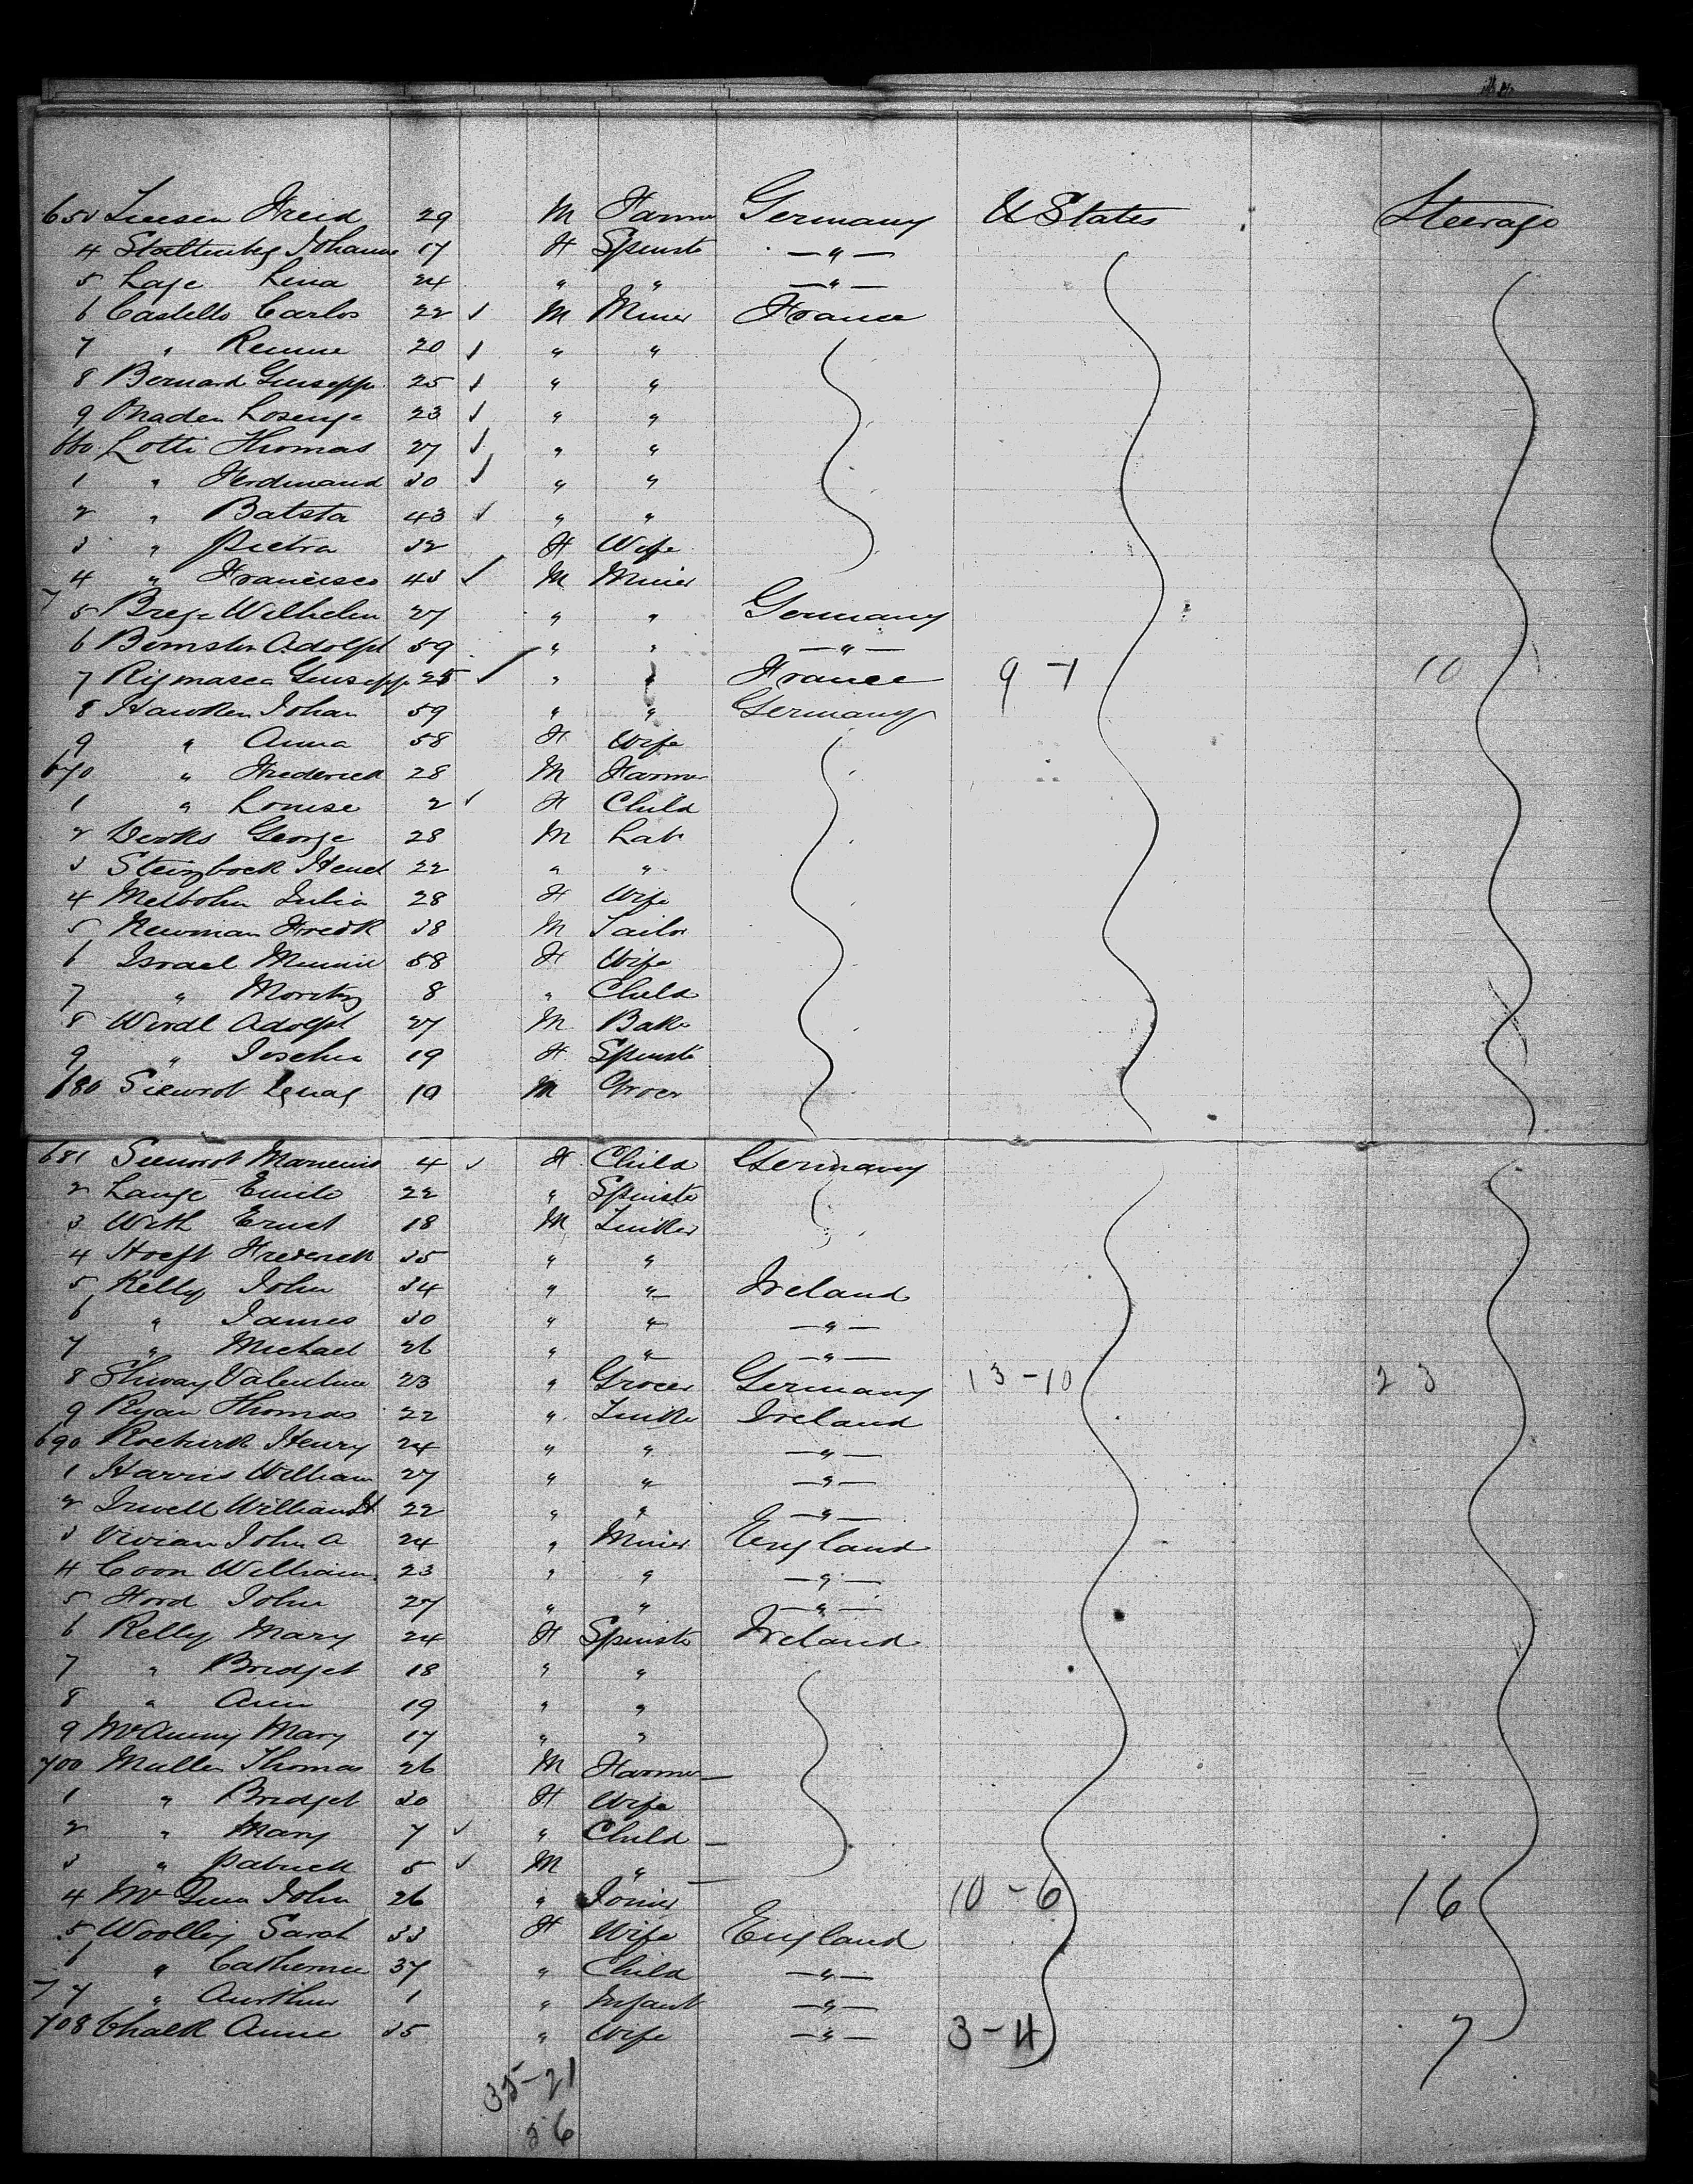 653 Jensen Freid 29 M Farmer Germany U States Steerage
4 Stoltenberg Johanne 17 F Spinste — " —
5 Lage Lina 24 " " — " —
6 Castello Carlos 22 ✓ M Miner France
7 " Remme 20 ✓ " "
8 Bernard Guisepp 25 ✓ " "
9 23 ✓ " "
660 Lotti Thomas 27 ✓ " "
1 " Ferdinand 30 ✓ " "
2 " Batsta 43 ✓ " "
3 " Pietra 32 F Wife
4 " Francisco 43 ✓ M Miner
5 Brege Wilhelm 27 " " Germany
6 Bernster Adolph 59 " " — " —
7 Guisepp 25 ✓ " " France 9 - 1 10
8 Hawken Johan 59 " " Germany
9 " Anna 58 F Wife
670 " Frederick 28 M Farmer
1 " Louise 2 ✓ F Child
2 Derks George 28 M Lab
3 Steinbock Hend 22 " "
4 Melbohn Julia 28 F Wife
5 Newman Fredk 38 M Tailor
6 Israel Minnie 58 F Wife
7 " Moritz 8 " Child
8 Wirdl Adolph 27 M Bak
9 " 19 F Spinste
680 19 M Grocer
681 4 ✓ F Child Germany
2 Lange Emile 22 " Spinste
3 With Ernst 18 M
4 Hoeft Frederick 35 " "
5 Kelly John 34 " " Ireland
6 " James 30 " " — " —
7 " Michael 26 " " — " —
8 Valentine 23 " Grocer Germany 13 - 10 23
9 Ryan Thomas 22 " Ireland
690 Roebuck Henry 24 " " — " —
1 Harris William 27 " " — " —
2 Irwell William H 22 " " — " —
3 Vivian John A 24 " Miner England
4 Coon William 23 " " — " —
5 Ford John 27 " " — " —
6 Kelly Mary 24 F Spinste Ireland
7 " Bridget 18 " "
8 " Ann 19 " "
9 Mary 17 " "
700 Mullen Thomas 26 M Farmer
1 " Bridget 30 F Wife
2 " Mary 7 ✓ " Child
3 " Patrick 5 ✓ M "
4 John 26 " Joiner 10 - 6 16
5 Woolley Sarah 33 F Wife England
6 " Catherine 37 " Child — " —
7 " Aurthur 1 " Infant — " —
708 Chalk Annie 35 " Wife — " — 3 - 4 7
35 - 21
56